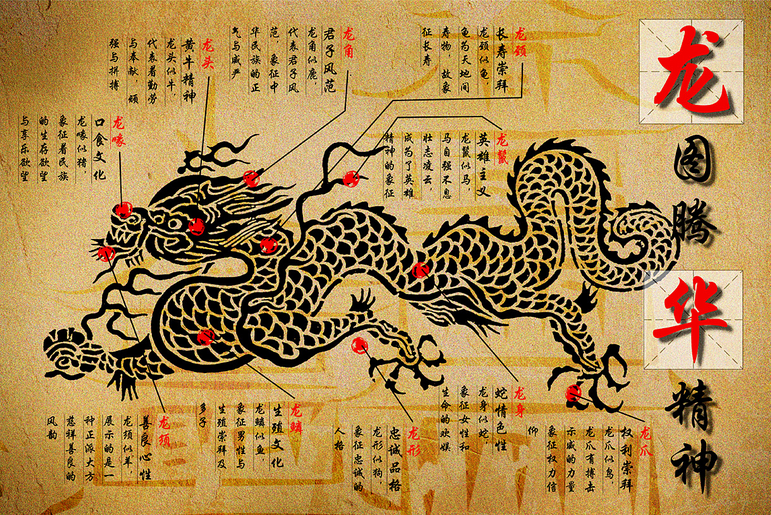 龙
图
腾
华
精
神
龙颈
长寿崇拜
龙颈似龟
龟为天地间
寿物，故象
征长寿
龙角
君子风范
龙角似鹿，
代表君子风
范，象征中
华民族的正
气与威严
龙头
黄牛精神
龙头似牛，
代表着勤劳
与奉献，顽
强与拼搏
龙鬣
英雄主义
龙鬣似马，
马自强不息
壮志凌云，
成为了英雄
精神的象征
龙喙
口食文化
龙喙似猪
象征着民族
的生存欲望
与享乐欲望
龙爪
权利崇拜
龙爪似鸟，
龙爪有搏击
示威的力量
象征权力信
仰
龙身
蛇情色性
龙身似蛇
象征女性和
生命的欢娱
龙形
忠诚品格
龙形似狗，
象征忠诚的
人格
龙鳞
生殖文化
龙鳞似鱼，
象征男性与
生殖崇拜及
多子
龙须
善良心性
龙须似羊，
展示的是一
种正派大方
慈祥善良的
风韵